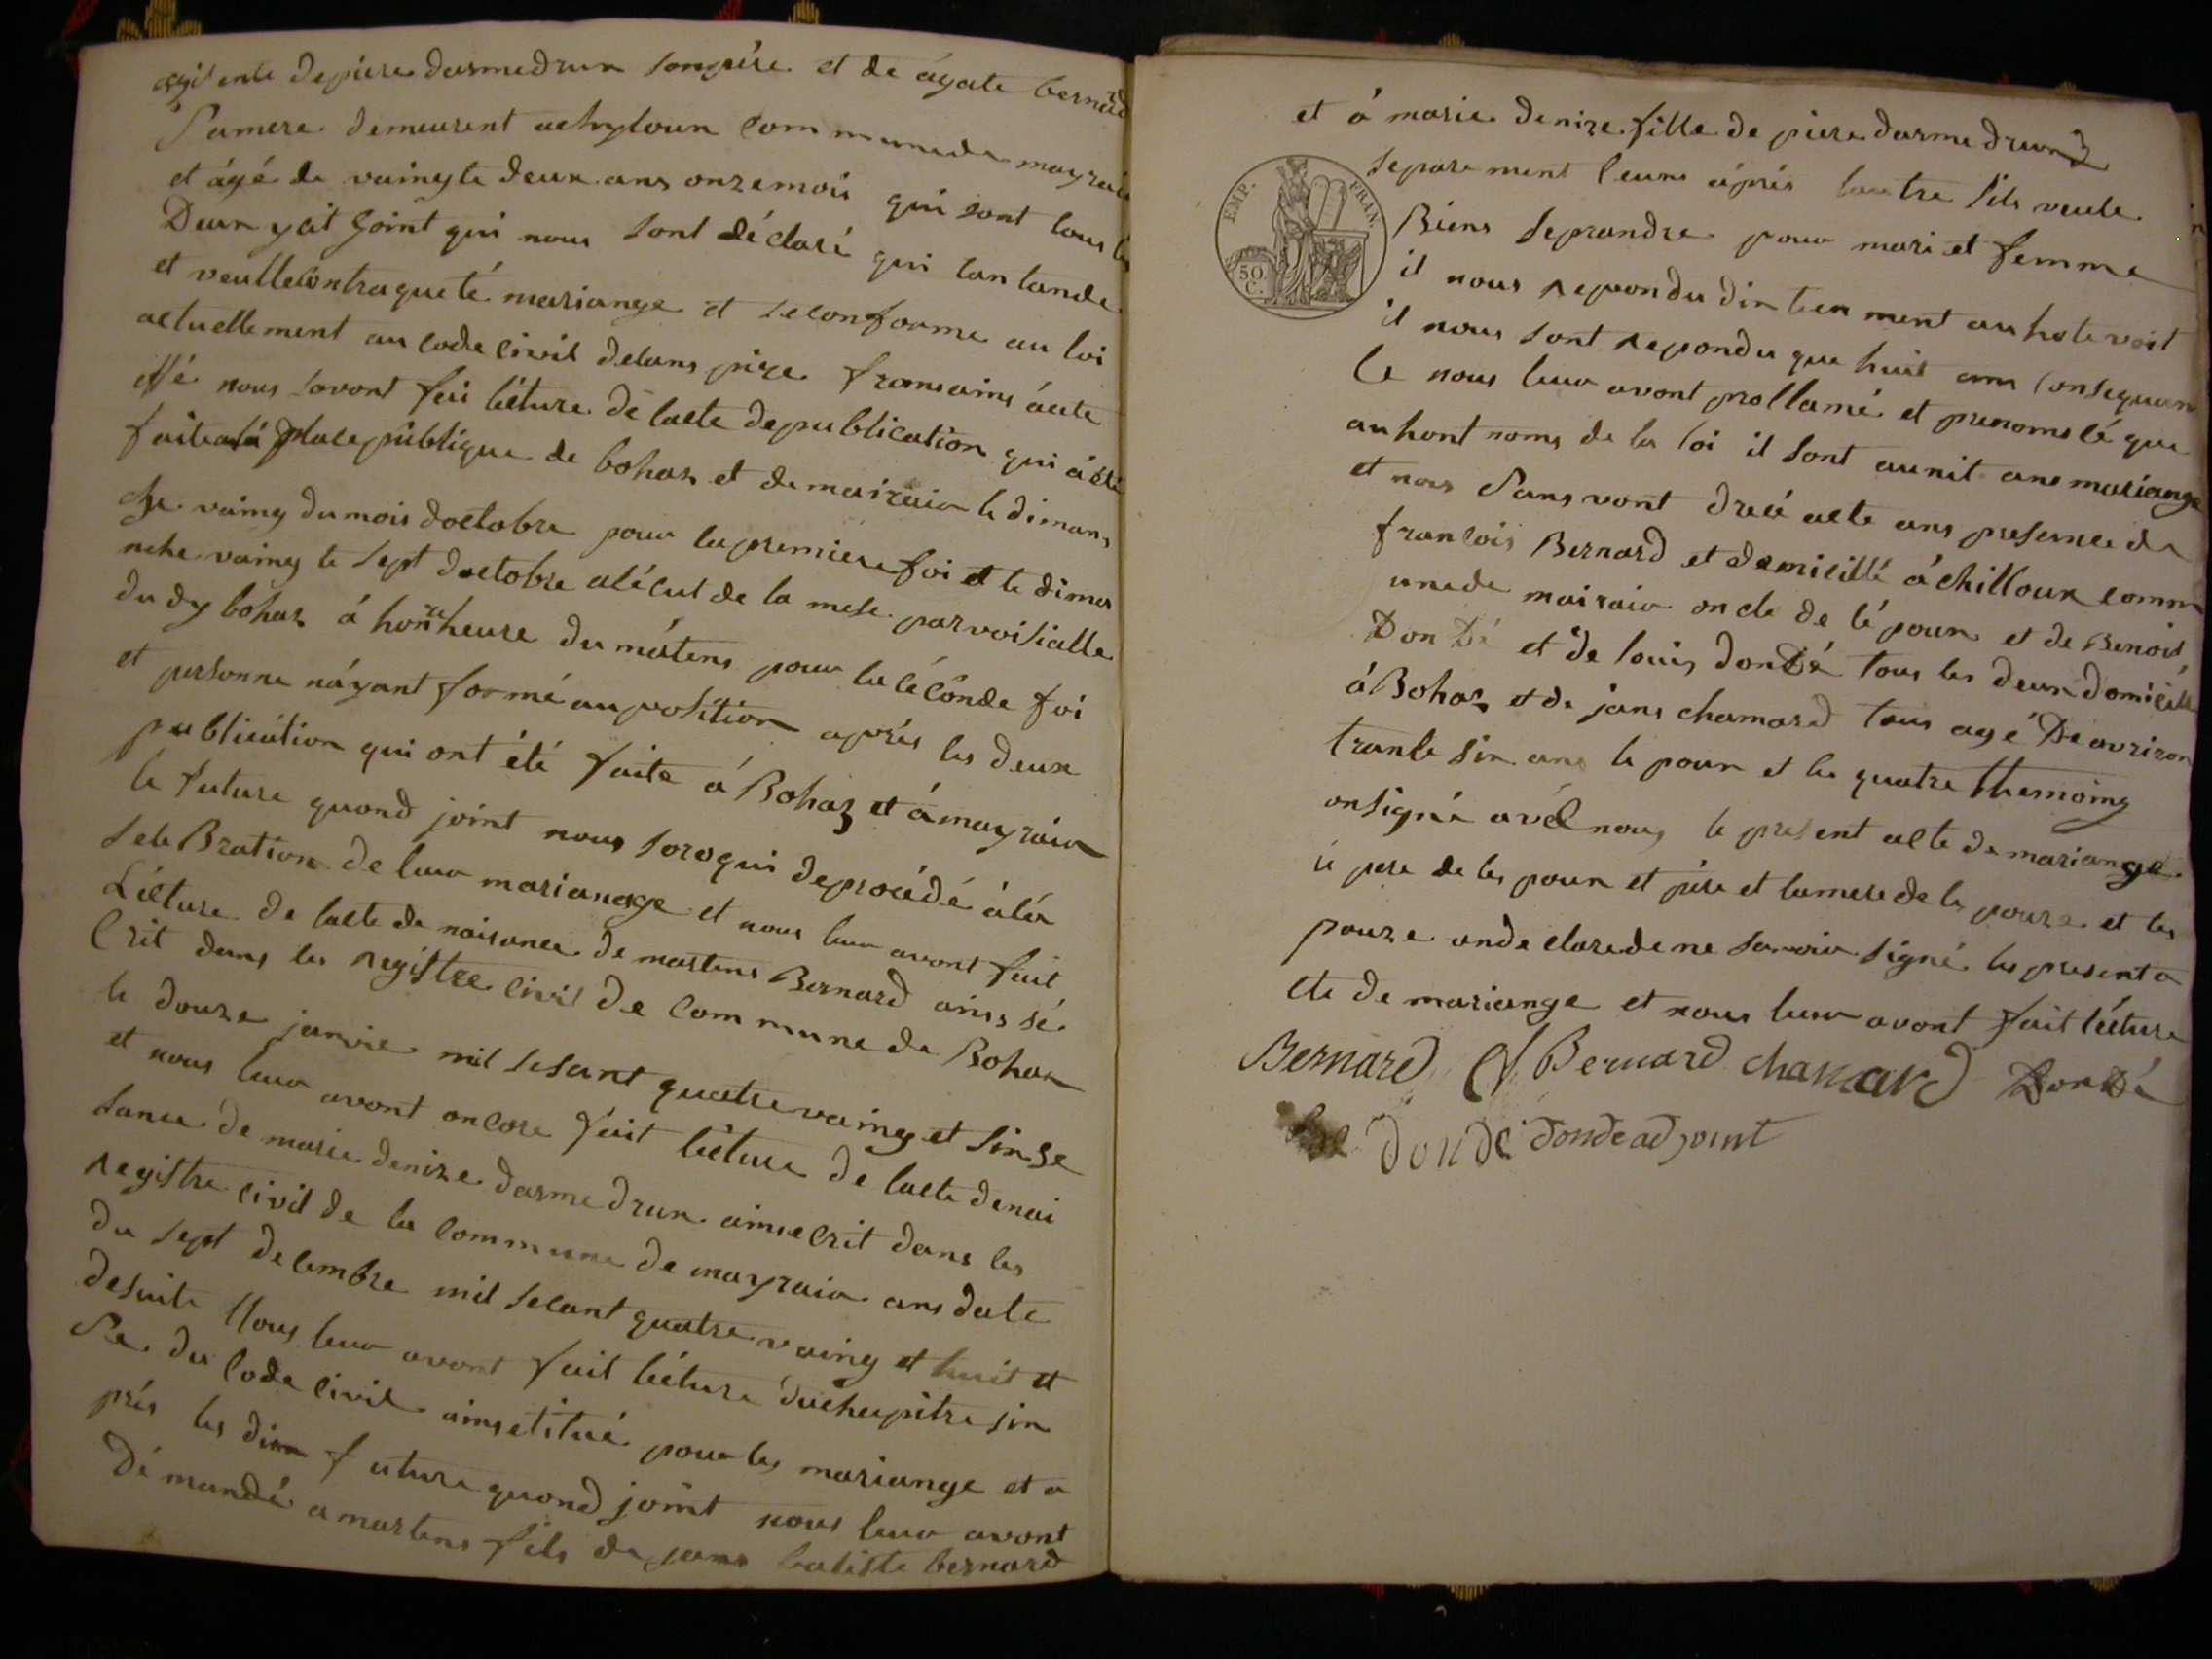 de piere darmedrun son père et de ágate bernard
Samere demeurent achyloux commune de mayrai
et ágé de vaingte deux ans onze mois qui sont tous les
Deux yci joint qui nous sont déclaré qui lantande
et veulle contraqueté mariange et se conforme au loi
actuellement au code civil delans pire fransains acete
effé nous lavont fai lécture dé lacte de publication qui á été
faite alá place publique de bohas et de mairaia le diman
che vaing du mois doctobre pour la premiere foi et le diman
nche vaing te sept doctobre alécut de la mese parvoisialle
dudy bohas á honze heure du mátens pour la séconde foi
et personne náyant formé auposition aprés les deux
publicátion qui ont été faite á Bohas et á mayraia
le future quond joint nous soroqui deprocédé à lá
seleBration de leur marianage et nous leur avont fait
Lécture de lacte de naisance de martens Bernard ains sé
Crit dans les registre civil de commune de Bohas
le douze janvie mil sesant quatre vaing et sinze
et nous leur avont oncore fait lécture de lacte de nai
sance de marie denize darmedrun ainsecrit dans les
registre civil de la commune de mayraia ans date
du sept decembre mil secant quatre vaing et huit et
desuite Nous leur avont fait lécture du chapitre sin
Se du Code civil ainsetitué pour les mariange et a
prés les dix future quond joint nous leur avont
Démandé a martens fils de jans batiste bernard
et á marie denize fille de piere darmedrun
separement leuns áprés lautre sils veule
EMP. FRAN.
50 C.
Biens seprandre pour mari et femme
il nous repondu dintien ment au hote voit
il nous sont repondu que huit ans Consequan
Ce nous leur avont prollamé et prenomsé que
auhont noms de la loi il sont aunit ans mariange
et nous Sans vont drecé acte ans presence de
francois Bernard et demicillé á chilloux comm
une de mairaia oncle de lé poux et de Benoit
DonDé et de louis donDé tous les deux domicille
áBohas et de jans chamard tous agé De avriron
trante sin ans le poux et les quatre themoing
onsigné avéc nous le present acte de mariange
ce pere de les poux et pére et lamere de les pouze et les
pouze onde clarede ne savoir signé les present a
cte de mariange et nous leur avont fait lécture
Bernard Bernard chamard DonDé
Dondé donde adjoint